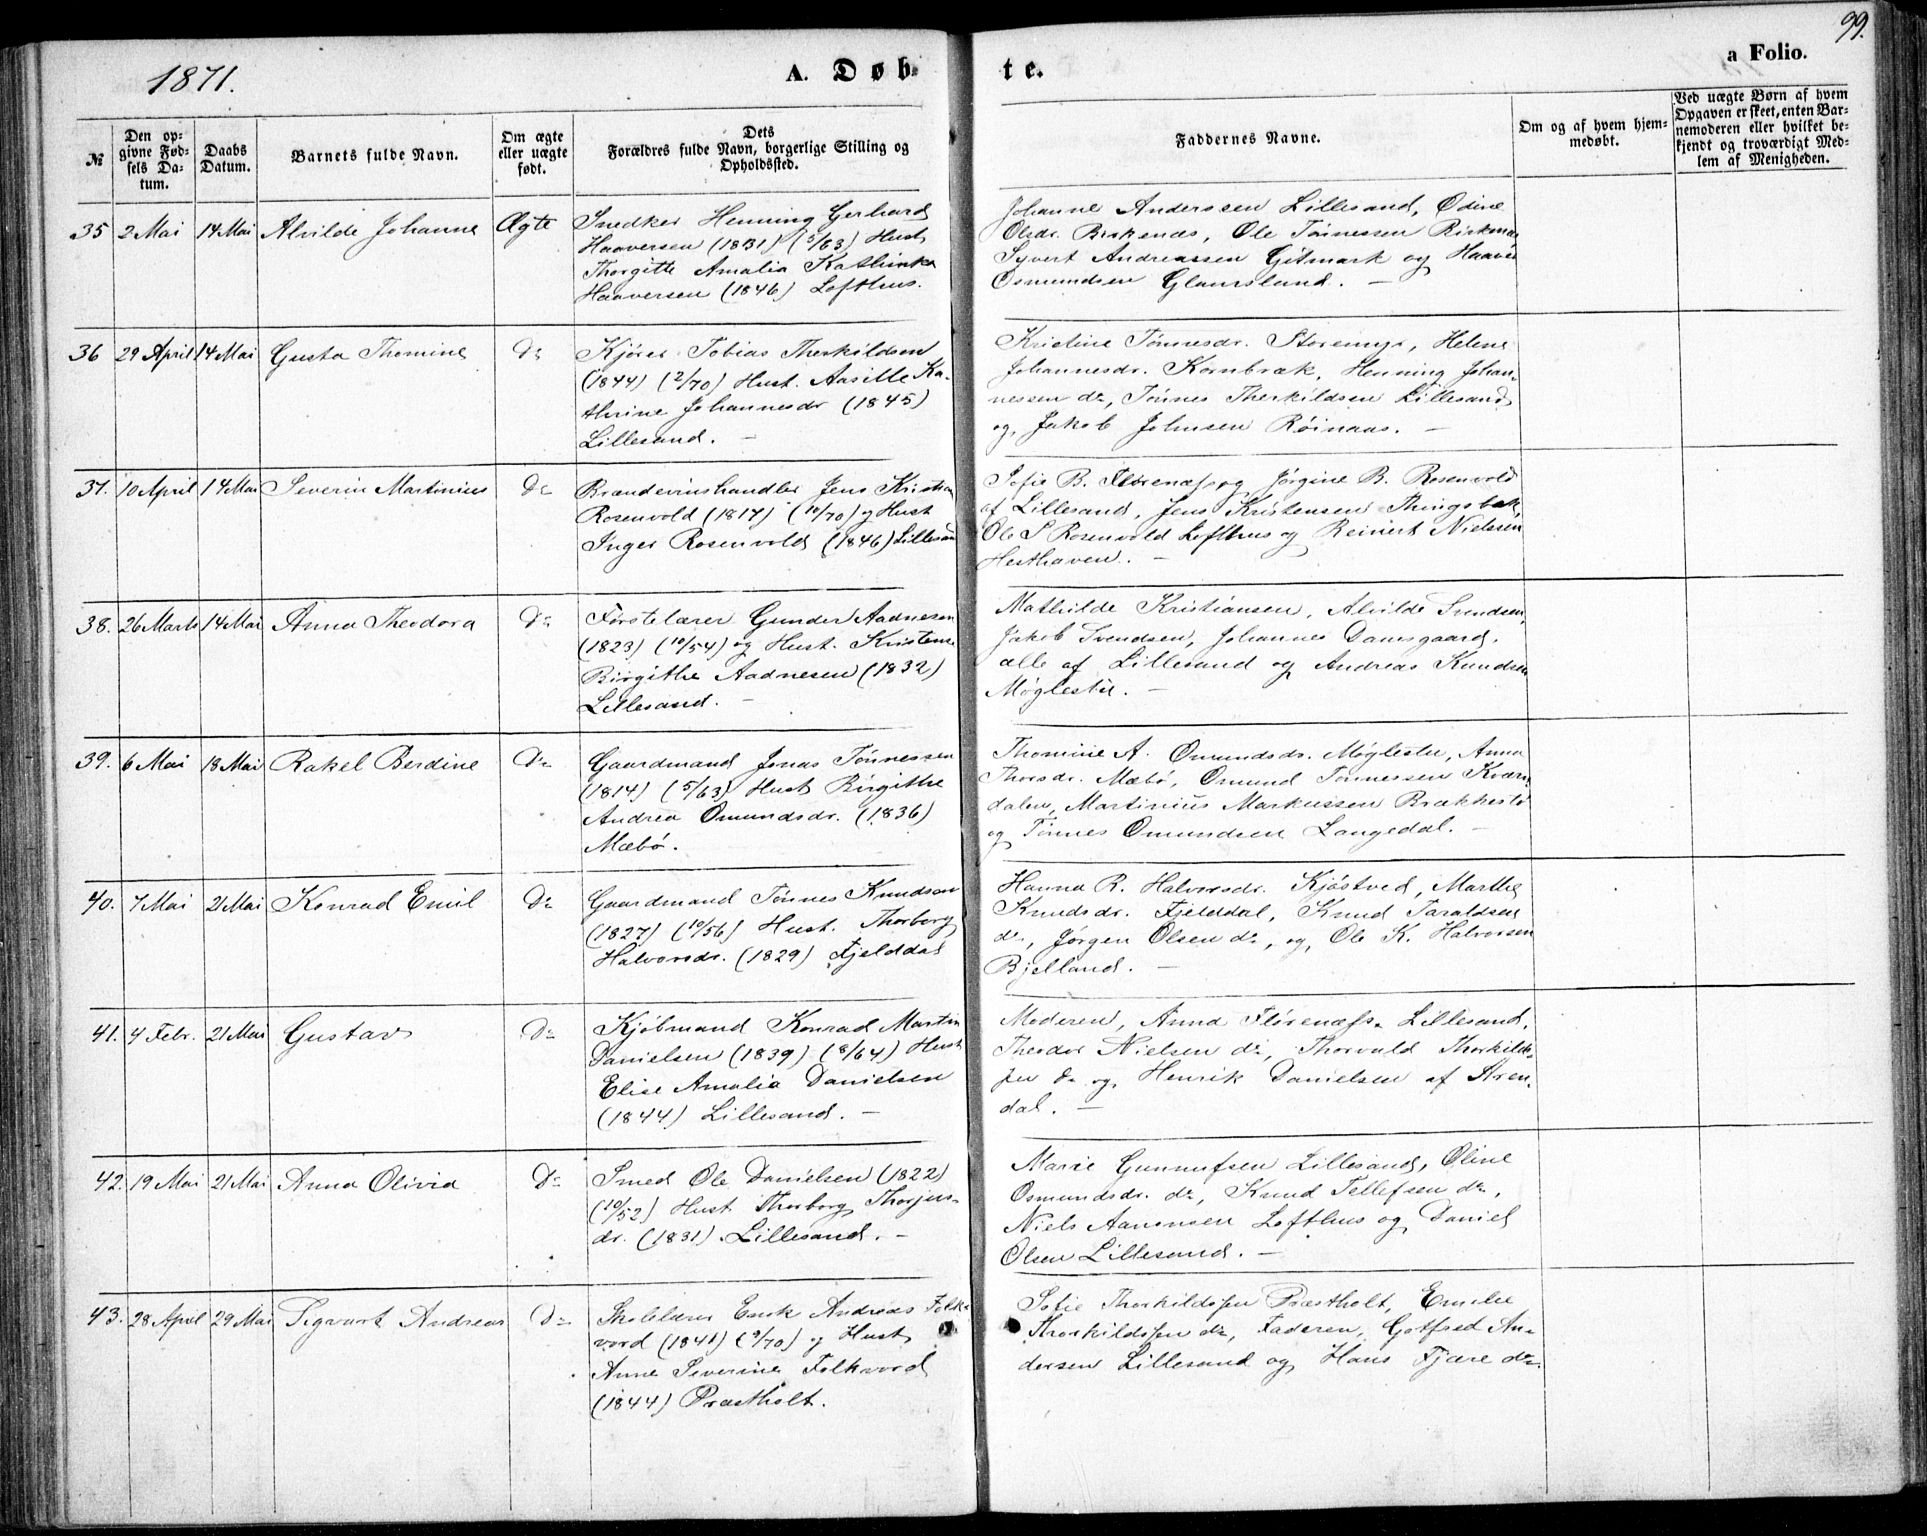 1871.
A. Døbte.
99.
a Folio.
№
Den opgivne Fødsels Datum.
Daabs Datum.
Barnets fulde Navn.
Om ægte eller uægte født.
Dets Forældres fulde Navn, borgerlige Stilling og Opholdssted.
Faddernes Navne.
Om og af hvem hjemmedøbt.
Ved uægte Børn af hvem Opgaven er skeet, enten Barnemoderen eller hvilket bekjendt og troværdigt Medlem af Menigheden.
35 2 Mai 14 Mai Alvilde Johanne Ægte
Snedker Henning Gerhard
Haaversen (1831) (3/63) Hust
Thorgitte Amalia Kathinka
Haaversen (1846) Lofthus.
Johanne Anderssen Lillesand, Odine
Olsdr. Birkenæs, Ole Tønnessen Birkenæs
Syvert Andreassen Gitmark og Haaver
Osmundsen Glamsland. —
36 29 April 14 Mai Gusta Thomine Do
Kjører Tobias Therkildsen
(1844) (2/70) Hust. Aasille Ka-
thrine Johannesdr (1845)
Lillesand. —
Kristine Tønnesdr. Storemyr, Helene
Johannesdr. Kornbræk, Henning Johan-
nessen do, Tønnes Therkildsen Lillesand
og Jakob Johnsen Røinaas. —
37. 10 April 14 Mai Severin Martinius Do
Brændevinshandler Jens Kristian
Rosenvold (1817) (10/70) og Hust
Inger Rosenvold (1846) Lillesand
Sofie B. Florenæss og Jørgine B. Rosenvold
af Lillesand, Jens Kristensen Thingsbæk,
Ole S Rosenvold Lofthus og Reinert Nielsen
Hesthaven. —
38. 26 Marts 14 Mai Anna Theodora Do
Førstelærer Gunder Aadnesen
(1823) (10/54) og Hust. Kristence
Birgithe Aadnesen (1832)
Lillesand. —
Mathilde Kristiansen, Alvilde Svendsen,
Jakob Svendsen, Johannes Danesgaard,
alle af Lillesand og Andreas Knudsen
Møglestu. —
39. 6 Mai 18 Mai Rakel Berdine Do
Gaardmand Jonas Tønnessen
(1814) (5/63) Hust Birgithe
Andrea Omundsdr. (1836)
Mæbø.
Thomine A. Omundsdr. Møglestu, Anna
Thorsdr. Mæbø, Omund Tønnessen Kværn-
dalen, Martinius Markussen Brækkestø
og Tønnes Omundsen Langedal. —
40. 7 Mai 21 Mai Konrad Emil Do
Gaardmand Tønnes Knudsen
(1827) (10/56) Hust. Thorborg
Halvorsdr. (1829) Fjelddal
Hanna R. Halvorsdr. Kjøstved, Marthe
Knudsdr. Fjelddal, Knud Taraldsen
do, Jørgen Olsen do, og Ole K. Halvorsen
Bjelland. —
41. 4 Febr. 21 Mai Gustav Do
Kjøbmand Konrad Martin
Danielsen (1839) (8/64) Hust
Elise Amalia Danielsen
(1844) Lillesand. —
Moderen, Anna Florenæss Lillesand,
Theodor Nielsen do, Thorvald Thorkilds-
sen do og Henrik Danielsen af Aren-
dal. —
42. 19 Mai 21 Mai Anna Olivia Do
Smed Ole Danielsen (1822)
(10/52) Hust Thorborg Thorjus-
dr. (1831). Lillesand. —
Marie Gunnufsen Lillesand, Oline
Osmundsdr. do, Knud Tellefsen do,
Niels Aanonsen Lofthus og Daniel
Olsen Lillesand. —
43. 28 April 29 Mai Sigvart Andreas Do
Skolelærer Enok Andreas Folk-
vord (1841) (9/70) og Hust
Anne Severine Folkvord
(1844) Præstholt.
Sofie Thorkildssen Præstholt, Emilie
Thorkildssen do, Faderen, Gotfred An-
dersen Lillesand og Hans Fjære do.